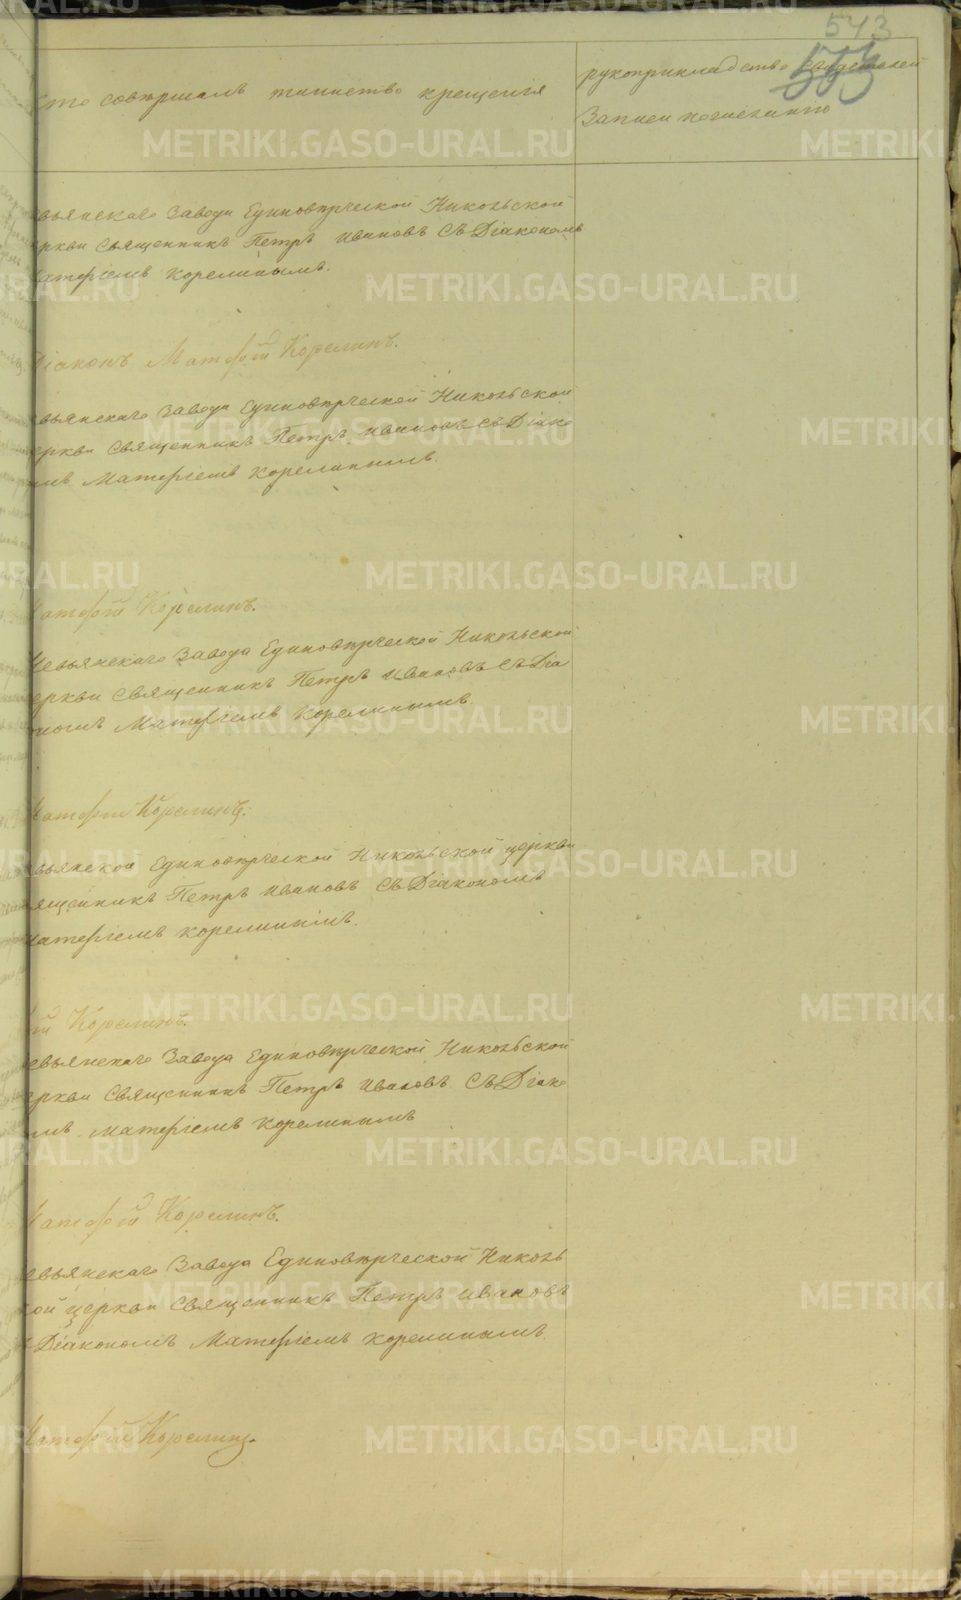 543
553
Кто совершалъ таинство крещенія
рукоприкладство свидетелей
Записи по желанію
вьянскаго Завода Единоверческой Никольской
еркви Священникъ Петръ Ивановъ Съ Діакономъ
Матфіемъ Корелинымъ.
Діаконъ Матфей Корелинъ.
вьянскаго Завода Единоверческой Никольской
еркви Священникъ Петръ Ивановъ Съ Діако
номъ Матфіемъ Корелинымъ.
Матфей Корелинъ.
Невьянскаго Завода Единоверческой Никольской
еркви Священникъ Петръ Ивановъ Съ Діа
кономъ Матфіемъ Корелинымъ
Матфей Корелинъ.
вьянской Единоверческой Никольской церкви
ященникъ Петръ Ивановъ Съ Діакономъ
Матфіемъ Корелинымъ.
ей Корелинъ.
евьянскаго Завода Единоверческой Никольской
еркви Священникъ Петръ Ивановъ Съ Діако
омъ Матфіемъ Корелинымъ
Матфей Корелинъ.
евьянскаго Завода Единоверческой Николь
кой церкви Священникъ Петръ Ивановъ
Діакономъ Матфіемъ Корелинымъ.
Матфей Корелинъ.
METRIKI.GASO-URAL.RU